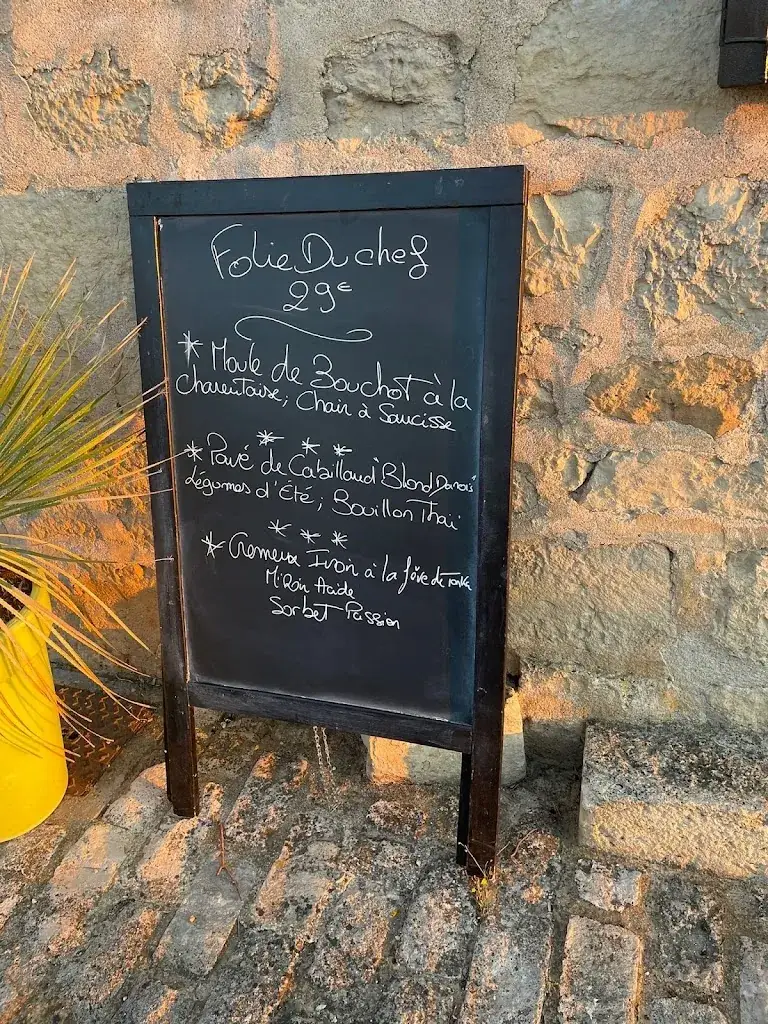 Folie Du chef
29€
* Moule de Bouchot à la
charentaise; Chair à Saucisse
* * *
* Pavé de Cabillaud "Blond Danois"
Légumes d'Été; Bouillon Thaï
* * *
* Cremeux Ivori à la fève de Tonka
Miroir Acide
Sorbet Passion